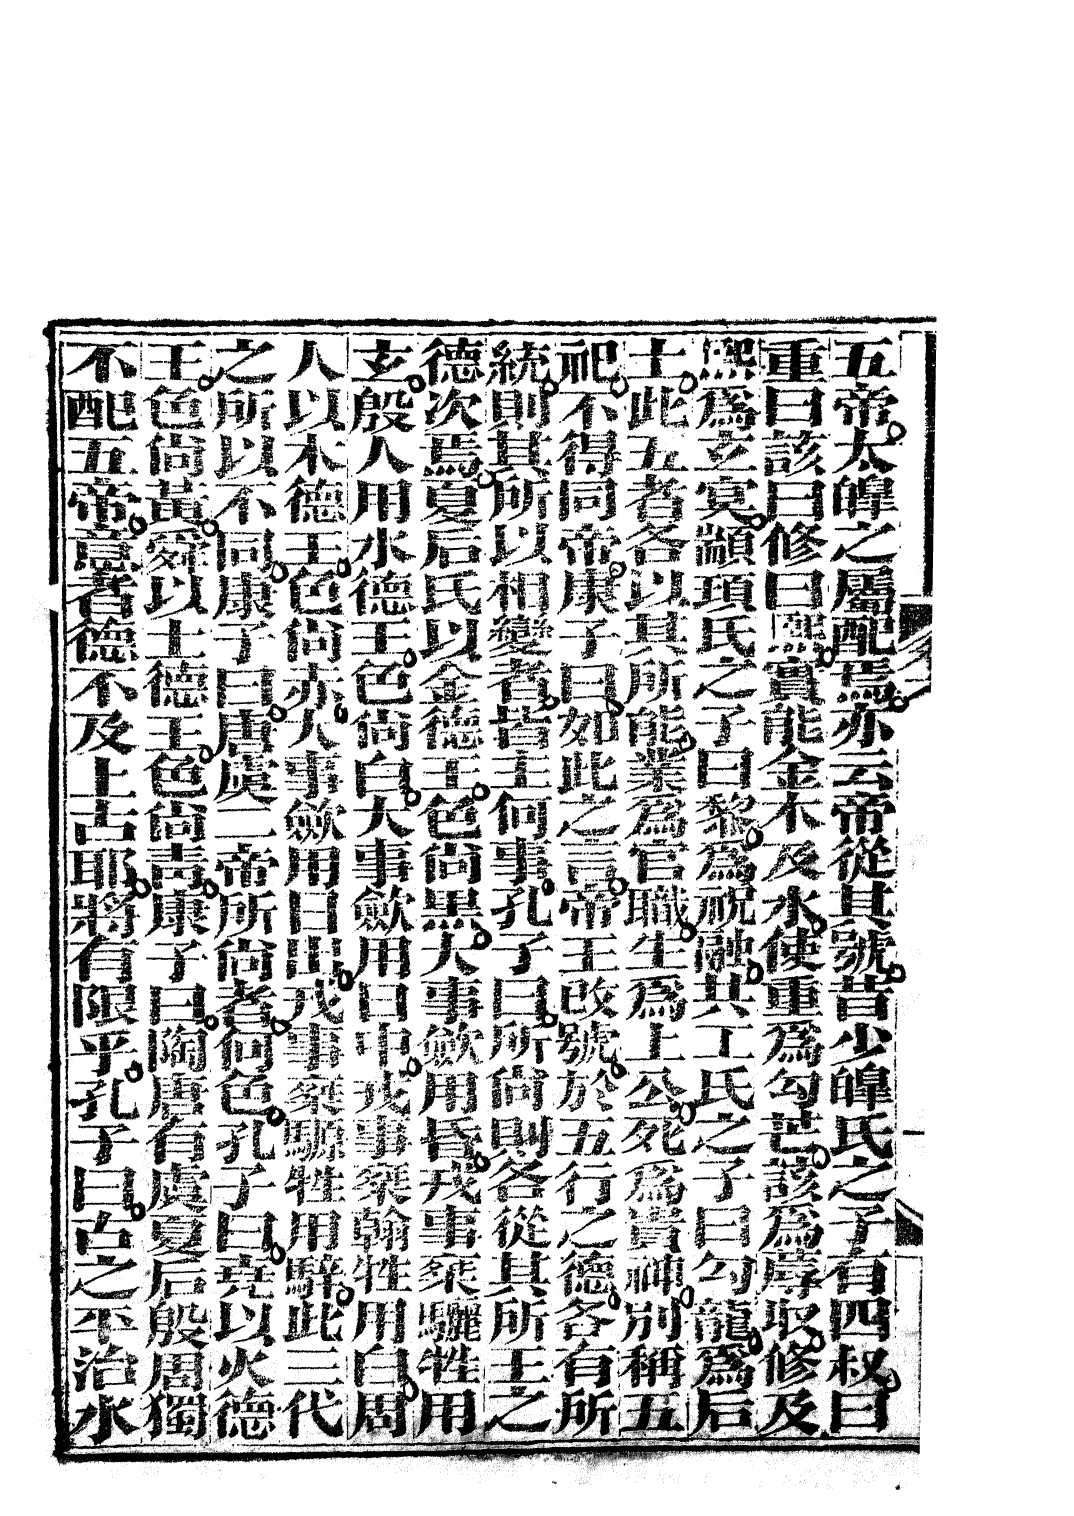 五帝太皥之屬配焉亦云帝從其號昔少皥氏之子有四叔曰
重曰該曰修曰熙實能金木及水使重爲勾芒該爲蓐收修及
熙爲玄冥顓頊氏之子曰黎爲祝融共工氏之子曰勾龍爲后
土此五者各以其所能業爲官職生爲上公死爲貴神別稱五
祀不得同帝康子曰如此之言帝王改號於五行之德各有所
統則其所以相變者皆主何事孔子曰所尚則各從其所王之
德次焉夏后氏以金德王色尚黑大事斂用昏戎事乘驪牲用
玄殷人用水德王色尚白大事斂用日中戎事乘翰牲用白周
人以木德王色尚赤大事斂用日出戎事乘騵牲用騂此三代
之所以不同康子曰唐虞二帝所尚者何色孔子曰堯以火德
王色尚黃舜以土德王色尚靑康子曰陶唐有虞夏后殷周獨
不配五帝意者德不及上古耶將有限乎孔子曰古之平治水